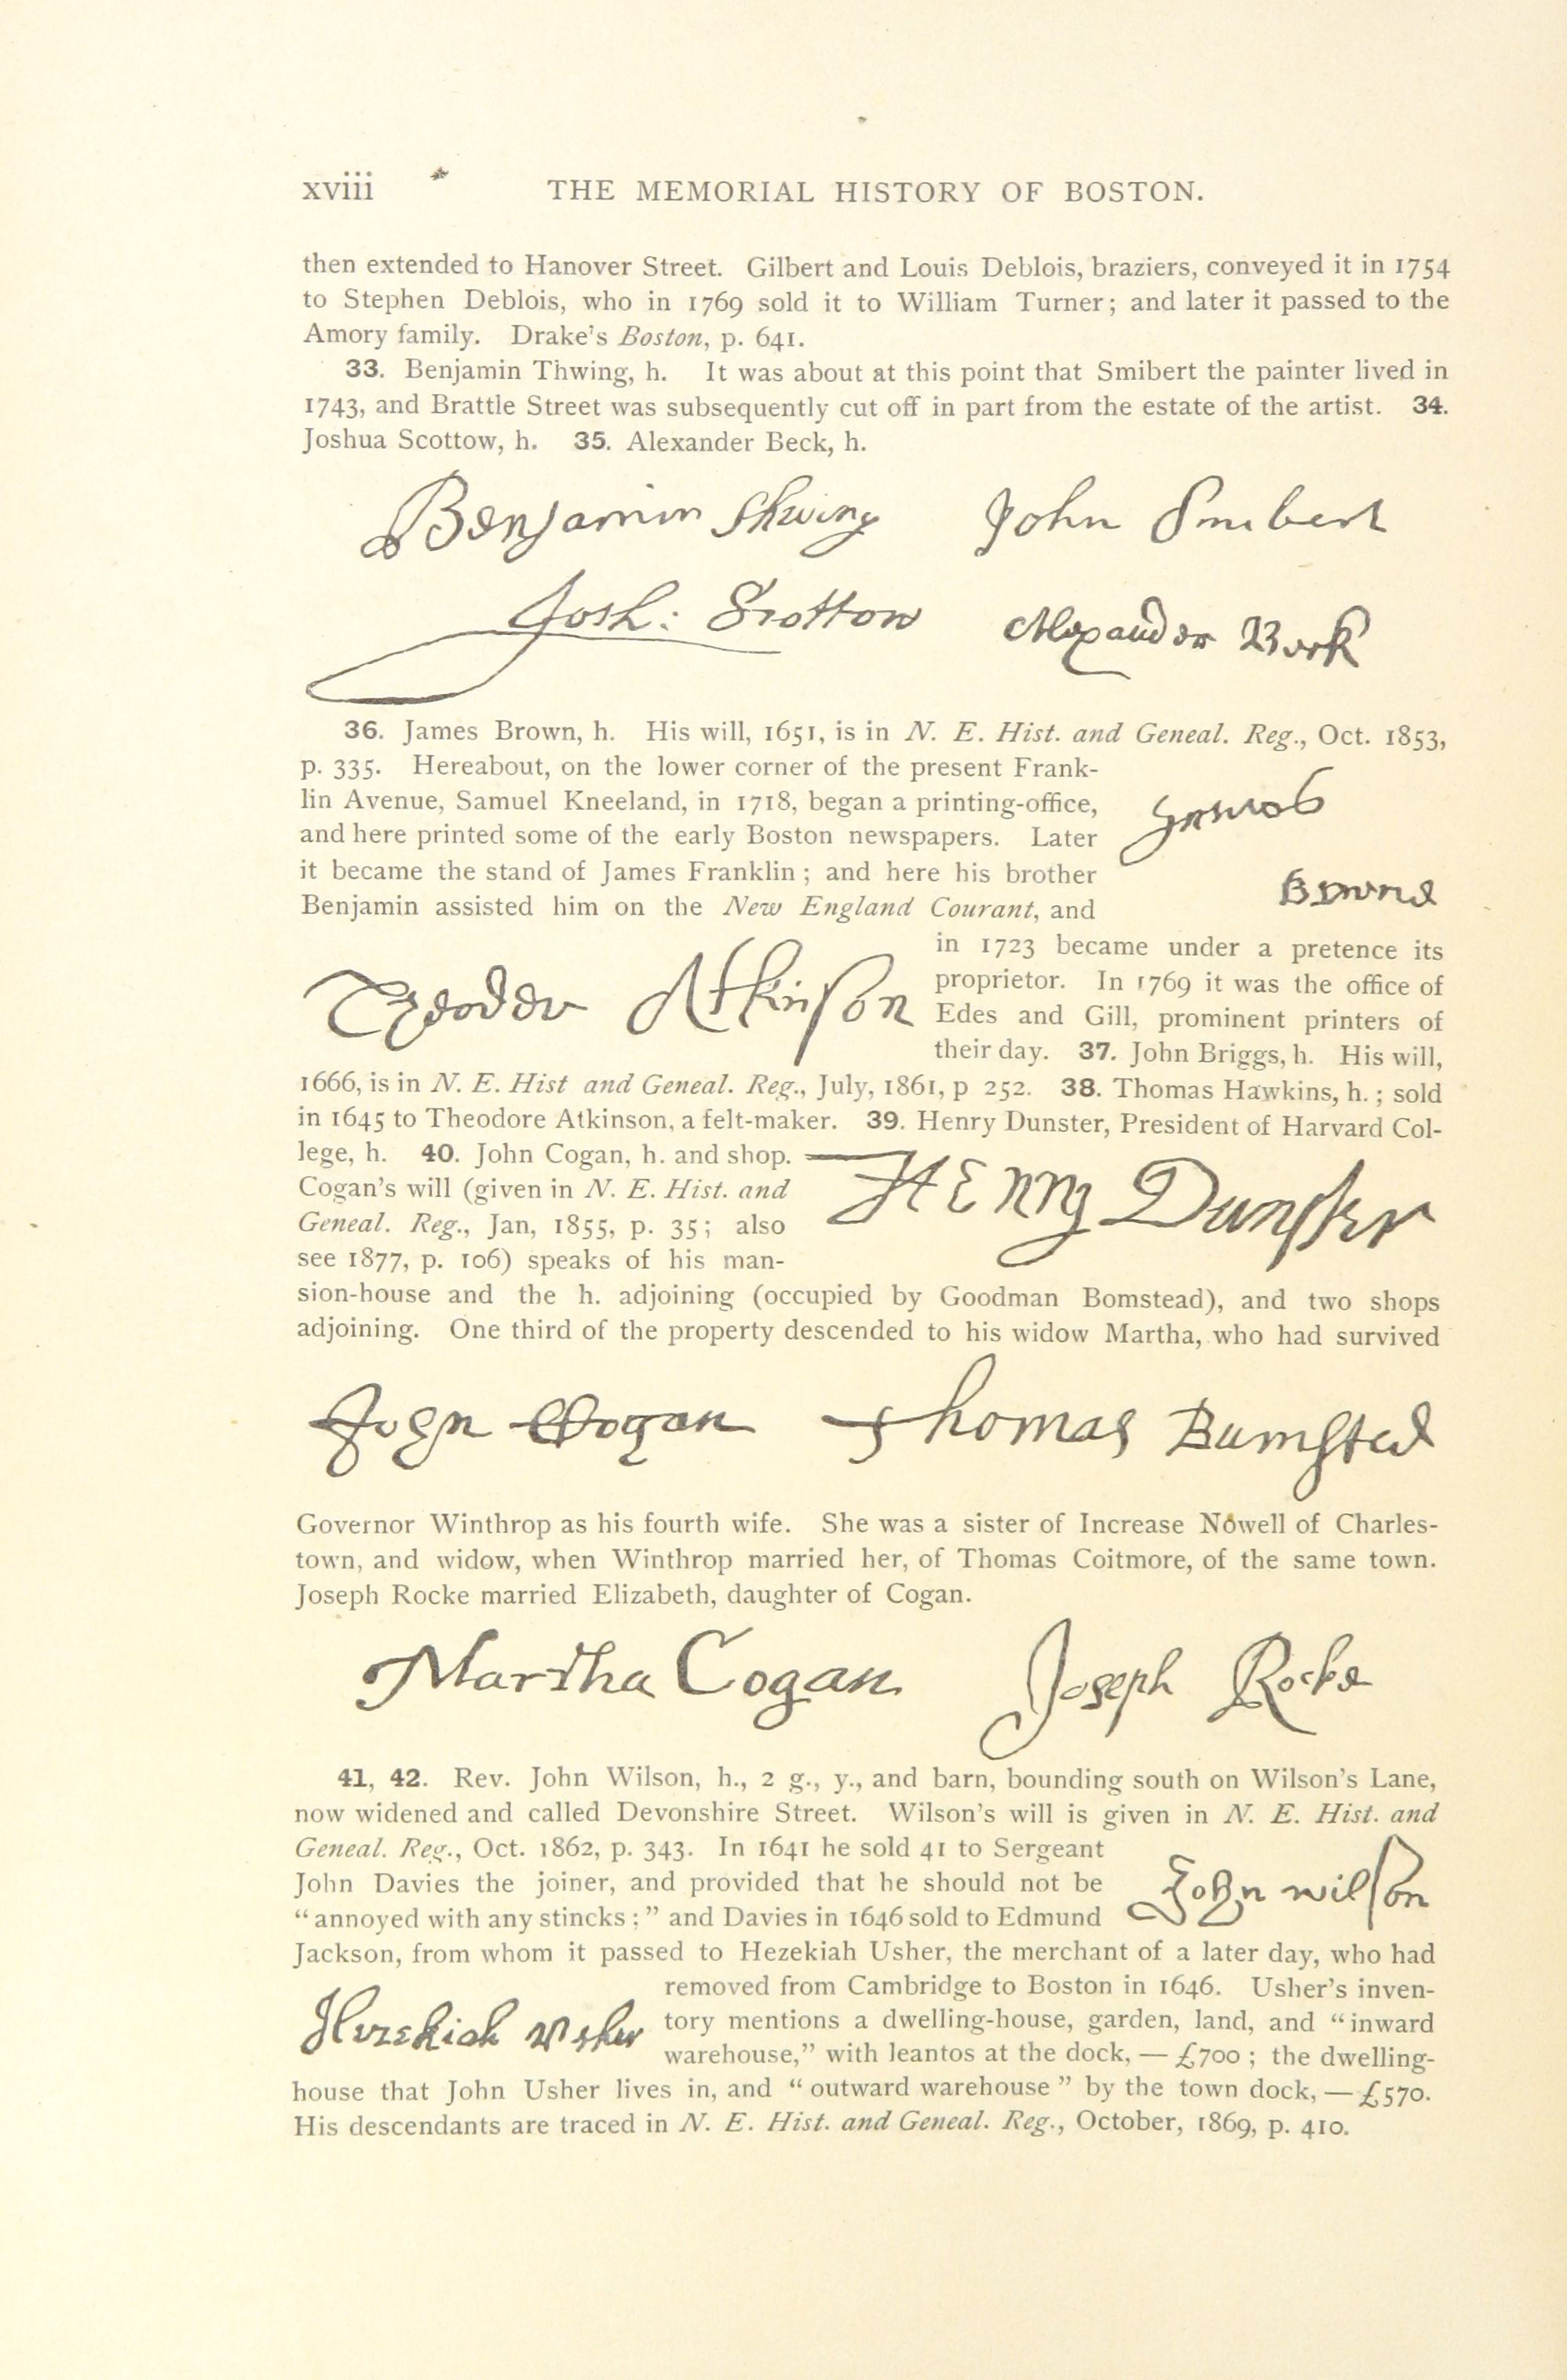 xviii THE MEMORIAL HISTORY OF BOSTON.
then extended to Hanover Street. Gilbert and Louis Deblois, braziers, conveyed it in 1754
to Stephen Deblois, who in 1769 sold it to William Turner; and later it passed to the
Amory family. Drake's Boston, p. 641.
33. Benjamin Thwing, h. It was about at this point that Smibert the painter lived in
1743, and Brattle Street was subsequently cut off in part from the estate of the artist. 34.
Joshua Scottow, h. 35. Alexander Beck, h.
Benjamin Thwing John Smibert
Josh: Scottow Alexander Beck
36. James Brown, h. His will, 1651, is in N. E. Hist. and Geneal. Reg., Oct. 1853,
p. 335. Hereabout, on the lower corner of the present Frank-
lin Avenue, Samuel Kneeland, in 1718, began a printing-office,
and here printed some of the early Boston newspapers. Later
it became the stand of James Franklin; and here his brother
Benjamin assisted him on the New England Courant, and
James
Browne
in 1723 became under a pretence its
proprietor. In 1769 it was the office of
Edes and Gill, prominent printers of
their day. 37. John Briggs, h. His will,
Theoder Atkinson
1666, is in N. E. Hist and Geneal. Reg., July, 1861, p 252. 38. Thomas Hawkins, h.; sold
in 1645 to Theodore Atkinson, a felt-maker. 39. Henry Dunster, President of Harvard Col-
lege, h. 40. John Cogan, h. and shop.
Cogan's will (given in N. E. Hist. and
Geneal. Reg., Jan, 1855, p. 35; also
see 1877, p. 106) speaks of his man-
Henry Dunster
sion-house and the h. adjoining (occupied by Goodman Bomstead), and two shops
adjoining. One third of the property descended to his widow Martha, who had survived
John Cogan Thomas Bumsted
Governor Winthrop as his fourth wife. She was a sister of Increase Nowell of Charles-
town, and widow, when Winthrop married her, of Thomas Coitmore, of the same town.
Joseph Rocke married Elizabeth, daughter of Cogan.
Martha Cogan Joseph Rocke
41, 42. Rev. John Wilson, h., 2 g., y., and barn, bounding south on Wilson's Lane,
now widened and called Devonshire Street. Wilson's will is given in N. E. Hist. and
Geneal. Reg., Oct. 1862, p. 343. In 1641 he sold 41 to Sergeant
John Davies the joiner, and provided that he should not be
“annoyed with any stincks;” and Davies in 1646 sold to Edmund
John wilson
Jackson, from whom it passed to Hezekiah Usher, the merchant of a later day, who had
removed from Cambridge to Boston in 1646. Usher's inven-
tory mentions a dwelling-house, garden, land, and “inward
warehouse,” with leantos at the dock, — £700; the dwelling-
Hezekiah Usher
house that John Usher lives in, and “outward warehouse” by the town dock, — £570.
His descendants are traced in N. E. Hist. and Geneal. Reg., October, 1869, p. 410.